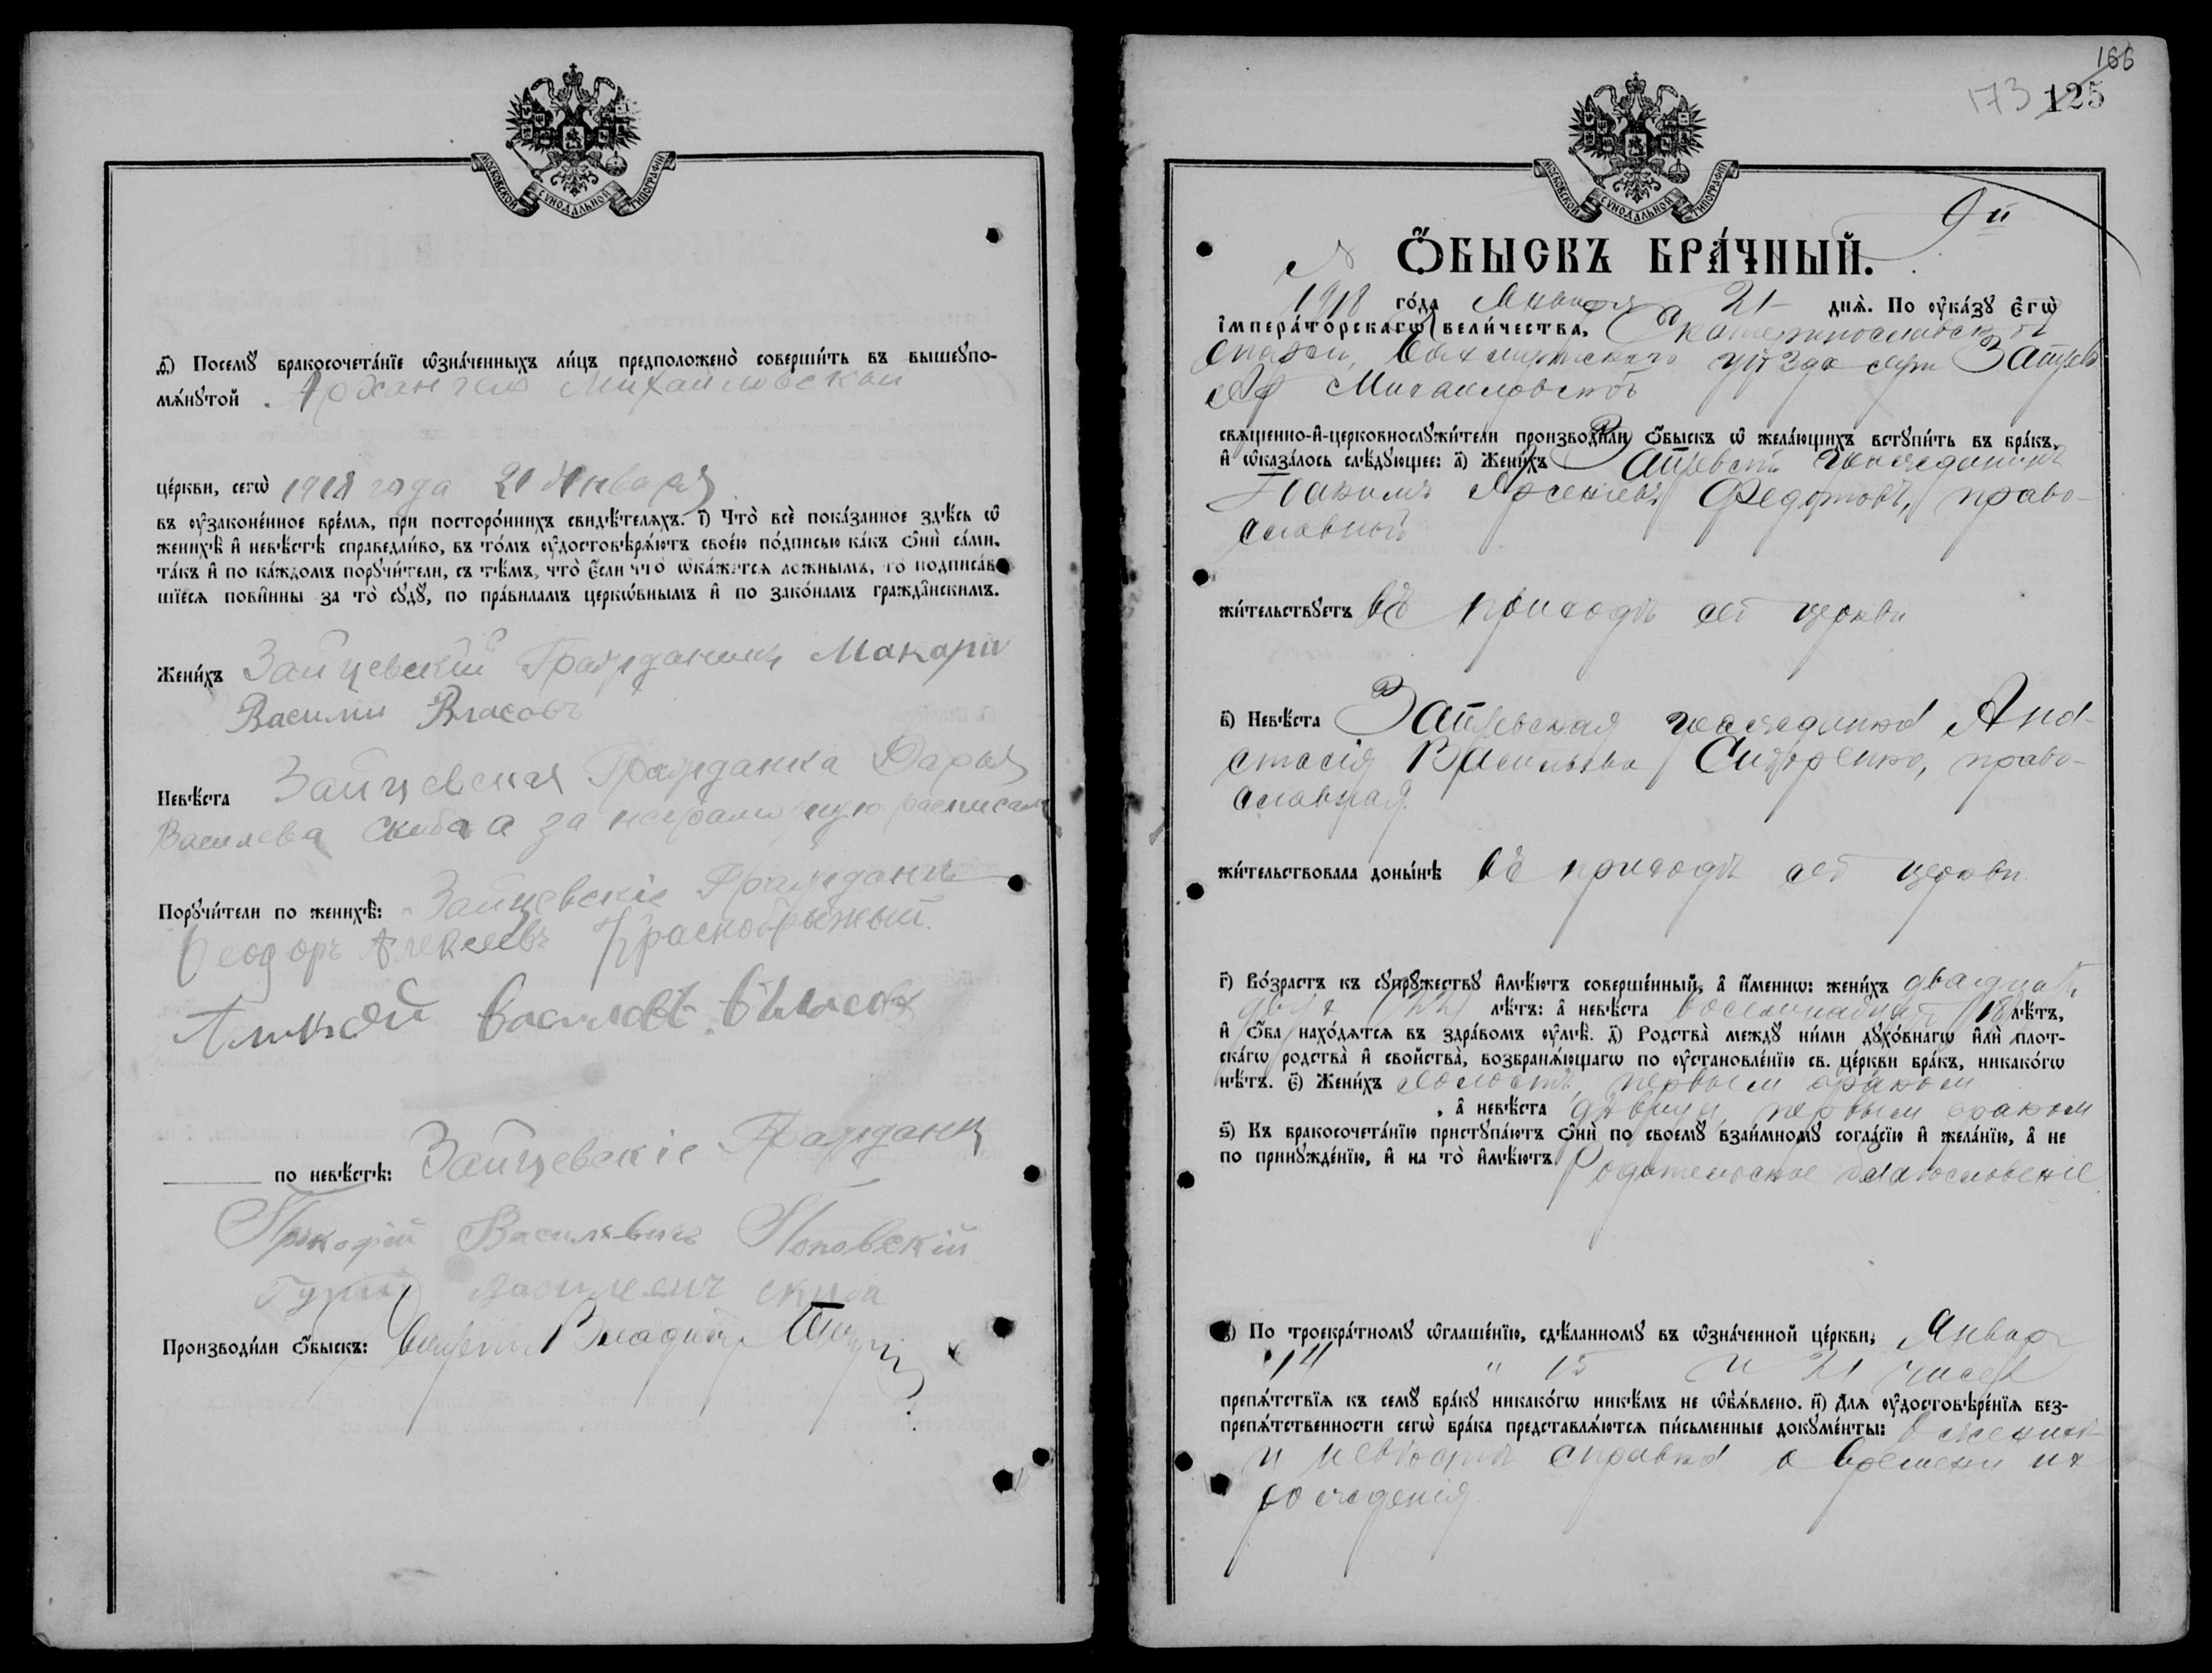 МОСКОВСКОЙ СѴНОДАЛЬНОЙ ТИПОГРАФІИ
д҃) Посемꙋ̀ бракосочета́нїе ѡ҆зна́ченныхъ ли́цъ предположено̀ соверши́ть въ вышеꙋпо-
мѧ́нꙋтой Архангело Михайловской
це́ркви, сегѡ̀ 1918 года 21 Января
въ ᲂу҆законе́нное вре́мѧ, при посторо́ннихъ свидѣ́телѧхъ. і҃) Что̀ всѐ пока́занное здѣ́сь ѡ҆
женихѣ̀ и҆ невѣ́стѣ справедли́во, въ то́мъ ᲂу҆достовѣрѧ́ютъ свое́ю по́дписью ка́къ ѻ҆нѝ са́ми,
та́къ и҆ по ка́ждомъ порꙋчи́тели, съ тѣ́мъ, что̀ є҆́сли что̀ ѡ҆ка́жетсѧ ло́жнымъ, то̀ подписа́в-
шїесѧ пови́нны за то̀ сꙋдꙋ̀, по пра́виламъ церко́внымъ и҆ по зако́намъ гражда́нскимъ.
Жени́хъ Зайцевскій Гражданинъ Макарій
Василии Власовъ
Невѣ́ста Зайцевская Гражданка Дарья
Василева Скиба а за неграмотную расписал
Порꙋчи́тели по женихѣ̀: Зайцевскіе Граждани
Феодоръ Алексеевъ Краснобрыжый
Алексей Василовъ Власовъ
по невѣ́стѣ: Зайцевскіе Граждани
Прокофій Василевичъ Поповскій
Гурій Василевичъ скиба
Производи́ли ѻ҆́быскъ: Владимір
166
173 125
МОСКОВСКОЙ СѴНОДАЛЬНОЙ ТИПОГРАФІИ
9й
Ѻ҆́БЫСКЪ БРА́ЧНЫЙ.
№
1918 го́да Января 21 днѧ̀. По ᲂу҆ка́зꙋ є҆гѡ̀
і҆мпера́торскагѡ вели́чества, Екатеринославской
епархіи, Бахмутскаго уѣзда Зайцево
Михаиловской
свѧще́нно-и҆-церковнослꙋжи́тели производи́ли ѻ҆́быскъ ѡ҆ жела́ющихъ встꙋпи́ть въ бра́къ,
и҆ ѡ҆каза́лось слѣ́дꙋющее: а҃) Жени́хъ Зайцевскій гражданинъ
Іоакимъ Арсеніевъ Федотовъ, право-
славный
жи́тельствꙋетъ въ приходѣ сей церкви
в҃) Невѣ́ста Зайцевская гражданка Ана-
стасія Васильева Сидоренко, право-
славная
жи́тельствовала доны́нѣ въ приходѣ сей церкви
г҃) Во́зрастъ къ сꙋпрꙋ́жествꙋ и҆мѣ́ютъ соверше́нный, а҆ и҆́меннѡ: жени́хъ двадцати
двухъ (22) лѣ́тъ: а҆ невѣ́ста восемнадцати (18) лѣ́тъ,
и҆ ѻ҆́ба нахо́дѧтсѧ въ здра́вомъ ᲂу҆мѣ̀. д҃) Родства̀ междꙋ̀ ни́ми дꙋхо́внагѡ и҆лѝ плот-
ска́гѡ родства̀ и҆ свойства̀, возбранѧ́ющагѡ по ᲂу҆становле́нїю св. це́ркви бра́къ, никако́гѡ
нѣ́тъ. є҃) Жени́хъ холостъ, первым браком
, а҆ невѣ́ста дѣвица, первым браком
ѕ҃) Къ бракосочета́нїю пристꙋпа́ютъ ѻ҆нѝ по своемꙋ̀ взаи́мномꙋ согла́сїю и҆ жела́нїю, а҆ не
по принꙋжде́нїю, и҆ на то̀ и҆мѣ́ютъ Родительское благословеніе
з҃) По троекра́тномꙋ ѡ҆глаше́нїю, сдѣ́ланномꙋ въ ѡ҆зна́ченной це́ркви, Января
14 " 15 и 21 чисел
препѧ́тствїѧ къ семꙋ̀ бра́кꙋ никако́гѡ никѣ́мъ не ѡ҆б̾ѧ́влено. и҃) Длѧ ᲂу҆достовѣре́нїѧ без-
препѧ́тственности сегѡ̀ бра́ка представлѧ́ютсѧ пи́сьменные докꙋме́нты: О женихѣ
и невѣстѣ справка о времени их
рожденія